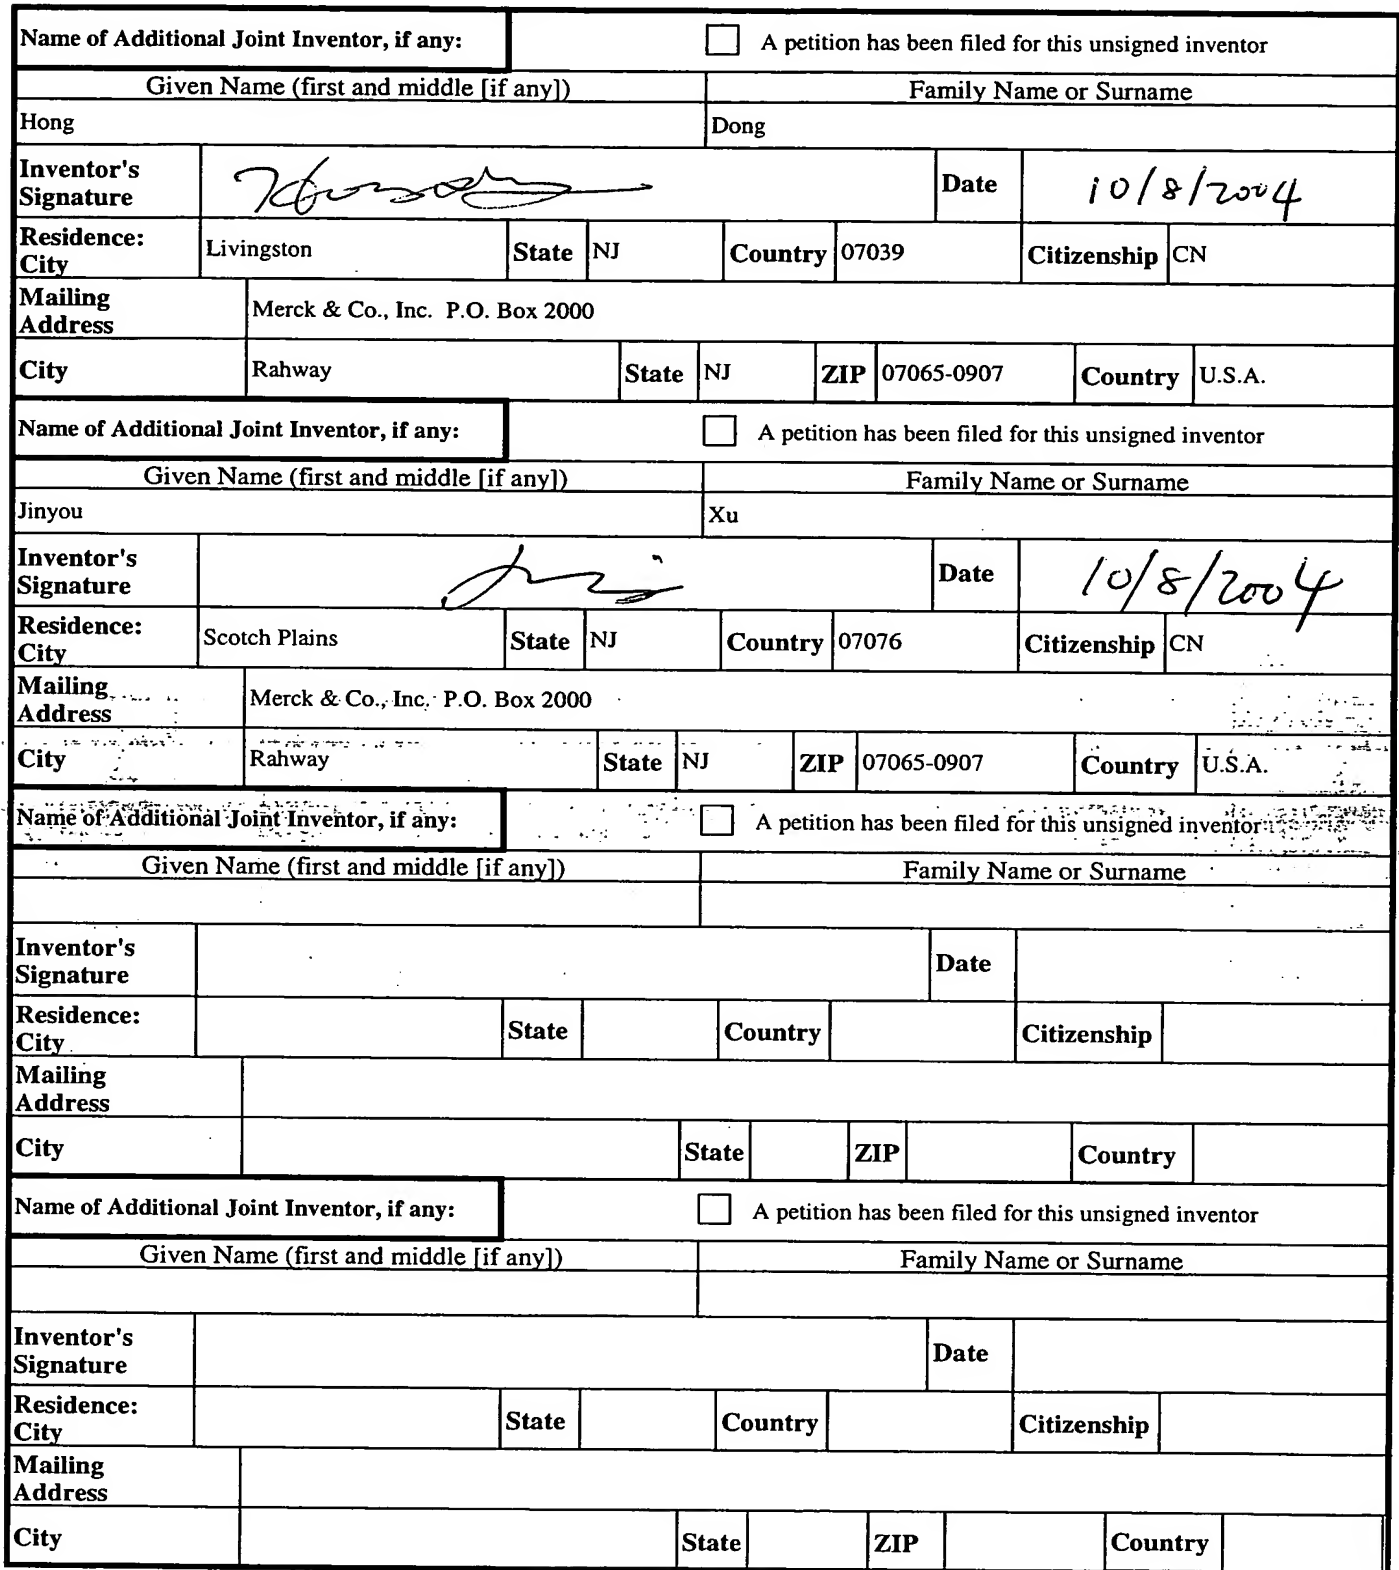 Name of Additional Joint Inventor, if any: A petition has been filed for this unsigned inventor
Given Name (first and middle [if any]) Family Name or Surname
Hong Dong
Inventor's Signature Date 10/8/2004
Residence: City Livingston State NJ Country 07039 Citizenship CN
Mailing Address Merck & Co., Inc. P.O. Box 2000
City Rahway State NJ ZIP 07065-0907 Country U.S.A.
Name of Additional Joint Inventor, if any: A petition has been filed for this unsigned inventor
Given Name (first and middle [if any]) Family Name or Surname
Jinyou Xu
Inventor's Signature Date 10/8/2004
Residence: City Scotch Plains State NJ Country 07076 Citizenship CN
Mailing Address Merck & Co., Inc. P.O. Box 2000
City Rahway State NJ ZIP 07065-0907 Country U.S.A.
Name of Additional Joint Inventor, if any: A petition has been filed for this unsigned inventor
Given Name (first and middle [if any]) Family Name or Surname
Inventor's Signature Date
Residence: City State Country Citizenship
Mailing Address
City State ZIP Country
Name of Additional Joint Inventor, if any: A petition has been filed for this unsigned inventor
Given Name (first and middle [if any]) Family Name or Surname
Inventor's Signature Date
Residence: City State Country Citizenship
Mailing Address
City State ZIP Country